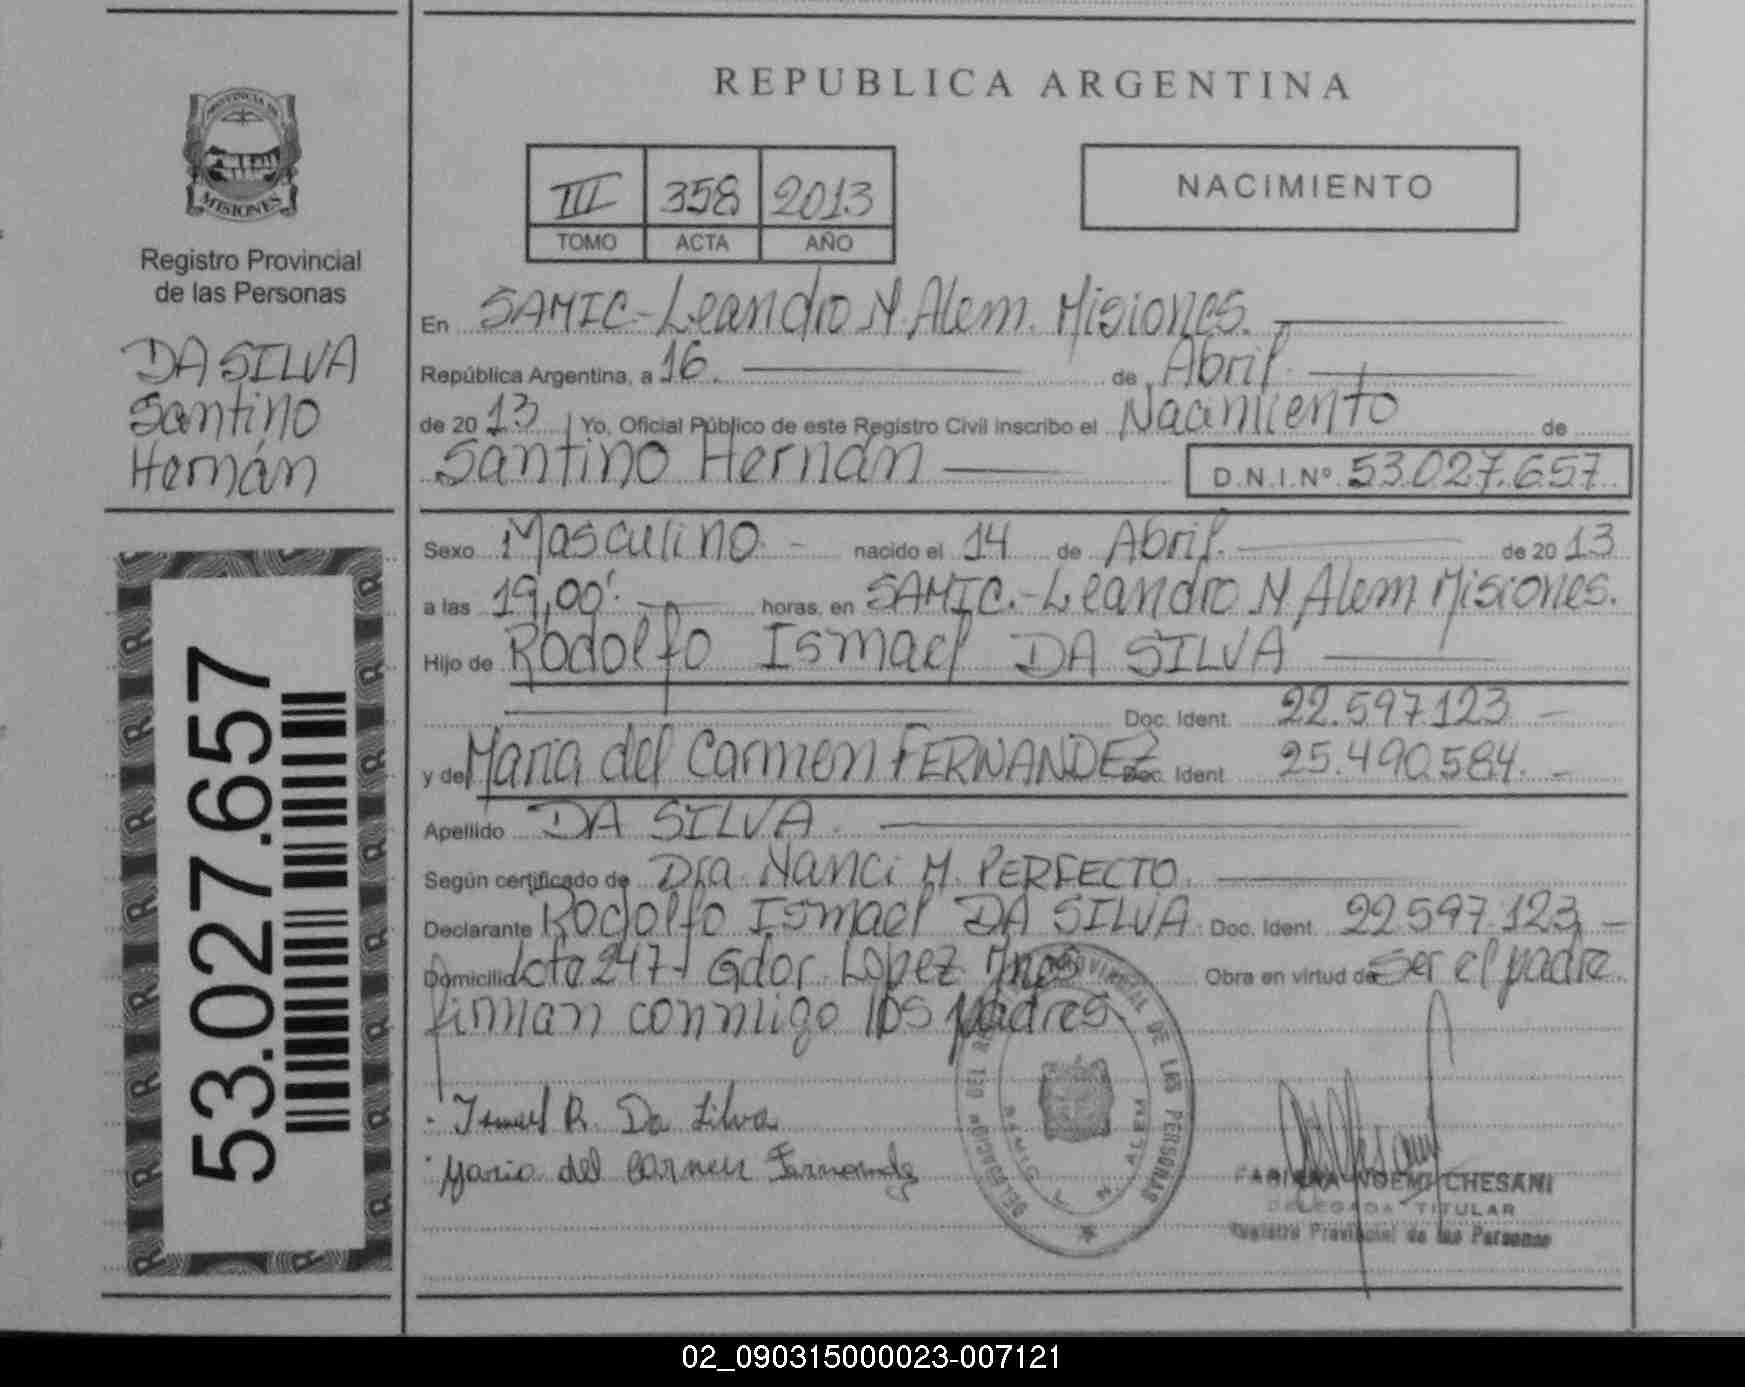 REPUBLICA ARGENTINA
PROVINCIA DE
MISIONES
Registro Provincial
de las Personas
DA SILVA
Santino
Hernán
53.027.657
III 358 2013
TOMO ACTA AÑO
NACIMIENTO
En SAMIC.-Leandro N. Alem. Misiones.
República Argentina, a 16. de Abril.
de 2013 Yo, Oficial Público de este Registro Civil inscribo el Nacimiento de
Santino Hernán D.N.I.Nº 53.027.657.
Sexo Masculino.- nacido el 14 de Abril. de 2013
a las 19,00'. horas, en SAMIC.-Leandro N Alem Misiones.
Hijo de Rodolfo Ismael DA SILVA
Doc. Ident. 22.597.123 -
y de Maria del Carmen FERNANDEZ Doc. Ident. 25.490.584. -
Apellido DA SILVA.
Según certificado de Dra. Nanci M. PERFECTO.
Declarante Rodolfo Ismael DA SILVA. Doc. Ident. 22.597.123 -
Domicilio Lote 247- Gdor. Lopez Mnes Obra en virtud de Ser el padre.
firman conmigo los padres
Ismael R. Da Silva
Maria del Carmen Fernandez
DELEGACION DEL REG. PROVINCIAL DE LAS PERSONAS
SAMIC L. N. ALEM
FABIANA NOEMI CHESANI
DELEGADA TITULAR
Registro Provincial de las Personas
02_090315000023-007121